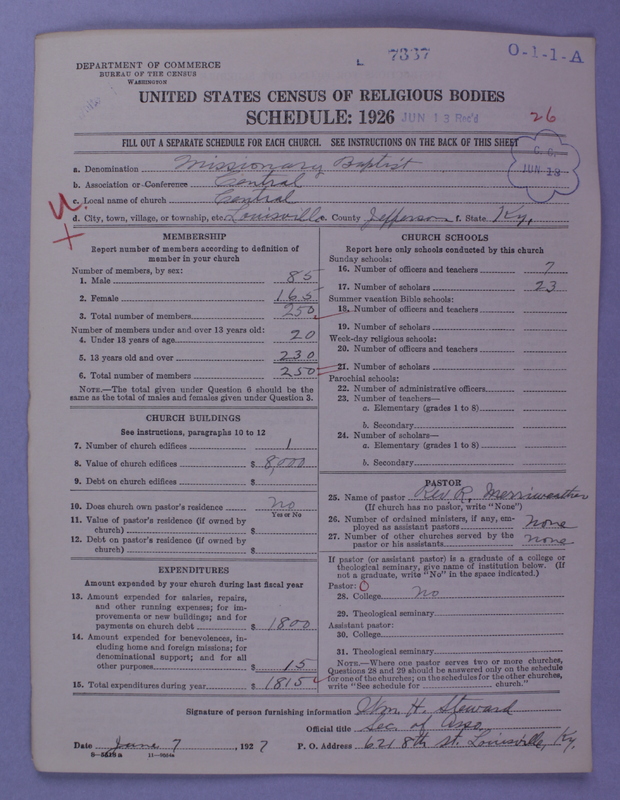 7337
O-1-1-A
DEPARTMENT OF COMMERCE
BUREAU OF THE CENSUS
WASHINGTON
UNITED STATES CENSUS OF RELIGIOUS BODIES
SCHEDULE: 1926
JUN 13 Rec'd
26
FILL OUT A SEPARATE SCHEDULE FOR EACH CHURCH. SEE INSTRUCTIONS ON THE BACK OF THIS SHEET
JUN 13
a. Denomination Missionary Baptist
b. Association or Conference Central
c. Local name of church Central
d. City, town, village, or township, etc. Louisville e. County Jefferson f. State Ky.
MEMBERSHIP
Report number of members according to definition of
member in your church
Number of members, by sex:
1. Male 85
2. Female 165
3. Total number of members 250
Number of members under and over 13 years old:
4. Under 13 years of age 20
5. 13 years old and over 230
6. Total number of members 250
NOTE.—The total given under Question 6 should be the
same as the total of males and females given under Question 3.
CHURCH BUILDINGS
See instructions, paragraphs 10 to 12
7. Number of church edifices 1
8. Value of church edifices $ 8,000
9. Debt on church edifices $
10. Does church own pastor's residence no
Yes or No
11. Value of pastor's residence (if owned by
church) $
12. Debt on pastor's residence (if owned by
church) $
EXPENDITURES
Amount expended by your church during last fiscal year
13. Amount expended for salaries, repairs,
and other running expenses; for im-
provements or new buildings; and for
payments on church debt $ 1800
14. Amount expended for benevolences, in-
cluding home and foreign missions; for
denominational support; and for all
other purposes $ 15
15. Total expenditures during year $ 1815
CHURCH SCHOOLS
Report here only schools conducted by this church
Sunday schools:
16. Number of officers and teachers 7
17. Number of scholars 23
Summer vacation Bible schools:
18. Number of officers and teachers
19. Number of scholars
Week-day religious schools:
20. Number of officers and teachers
21. Number of scholars
Parochial schools:
22. Number of administrative officers
23. Number of teachers—
a. Elementary (grades 1 to 8)
b. Secondary
24. Number of scholars—
a. Elementary (grades 1 to 8)
b. Secondary
PASTOR
25. Name of pastor Rev R. Merriweather
(If church has no pastor, write "None")
26. Number of ordained ministers, if any, em-
ployed as assistant pastors none
27. Number of other churches served by the
pastor or his assistants none
If pastor (or assistant pastor) is a graduate of a college or
theological seminary, give name of institution below. (If
not a graduate, write "No" in the space indicated.)
Pastor: 0
28. College no
29. Theological seminary
Assistant pastor:
30. College
31. Theological seminary
NOTE.—Where one pastor serves two or more churches,
Questions 28 and 29 should be answered only on the schedule
for one of the churches; on the schedules for the other churches,
write "See schedule for church."
Signature of person furnishing information Wm. H. Steward
Official title Sec. of Asso.
Date June 7, 1927 P. O. Address 621 8th st. Louisville, Ky.